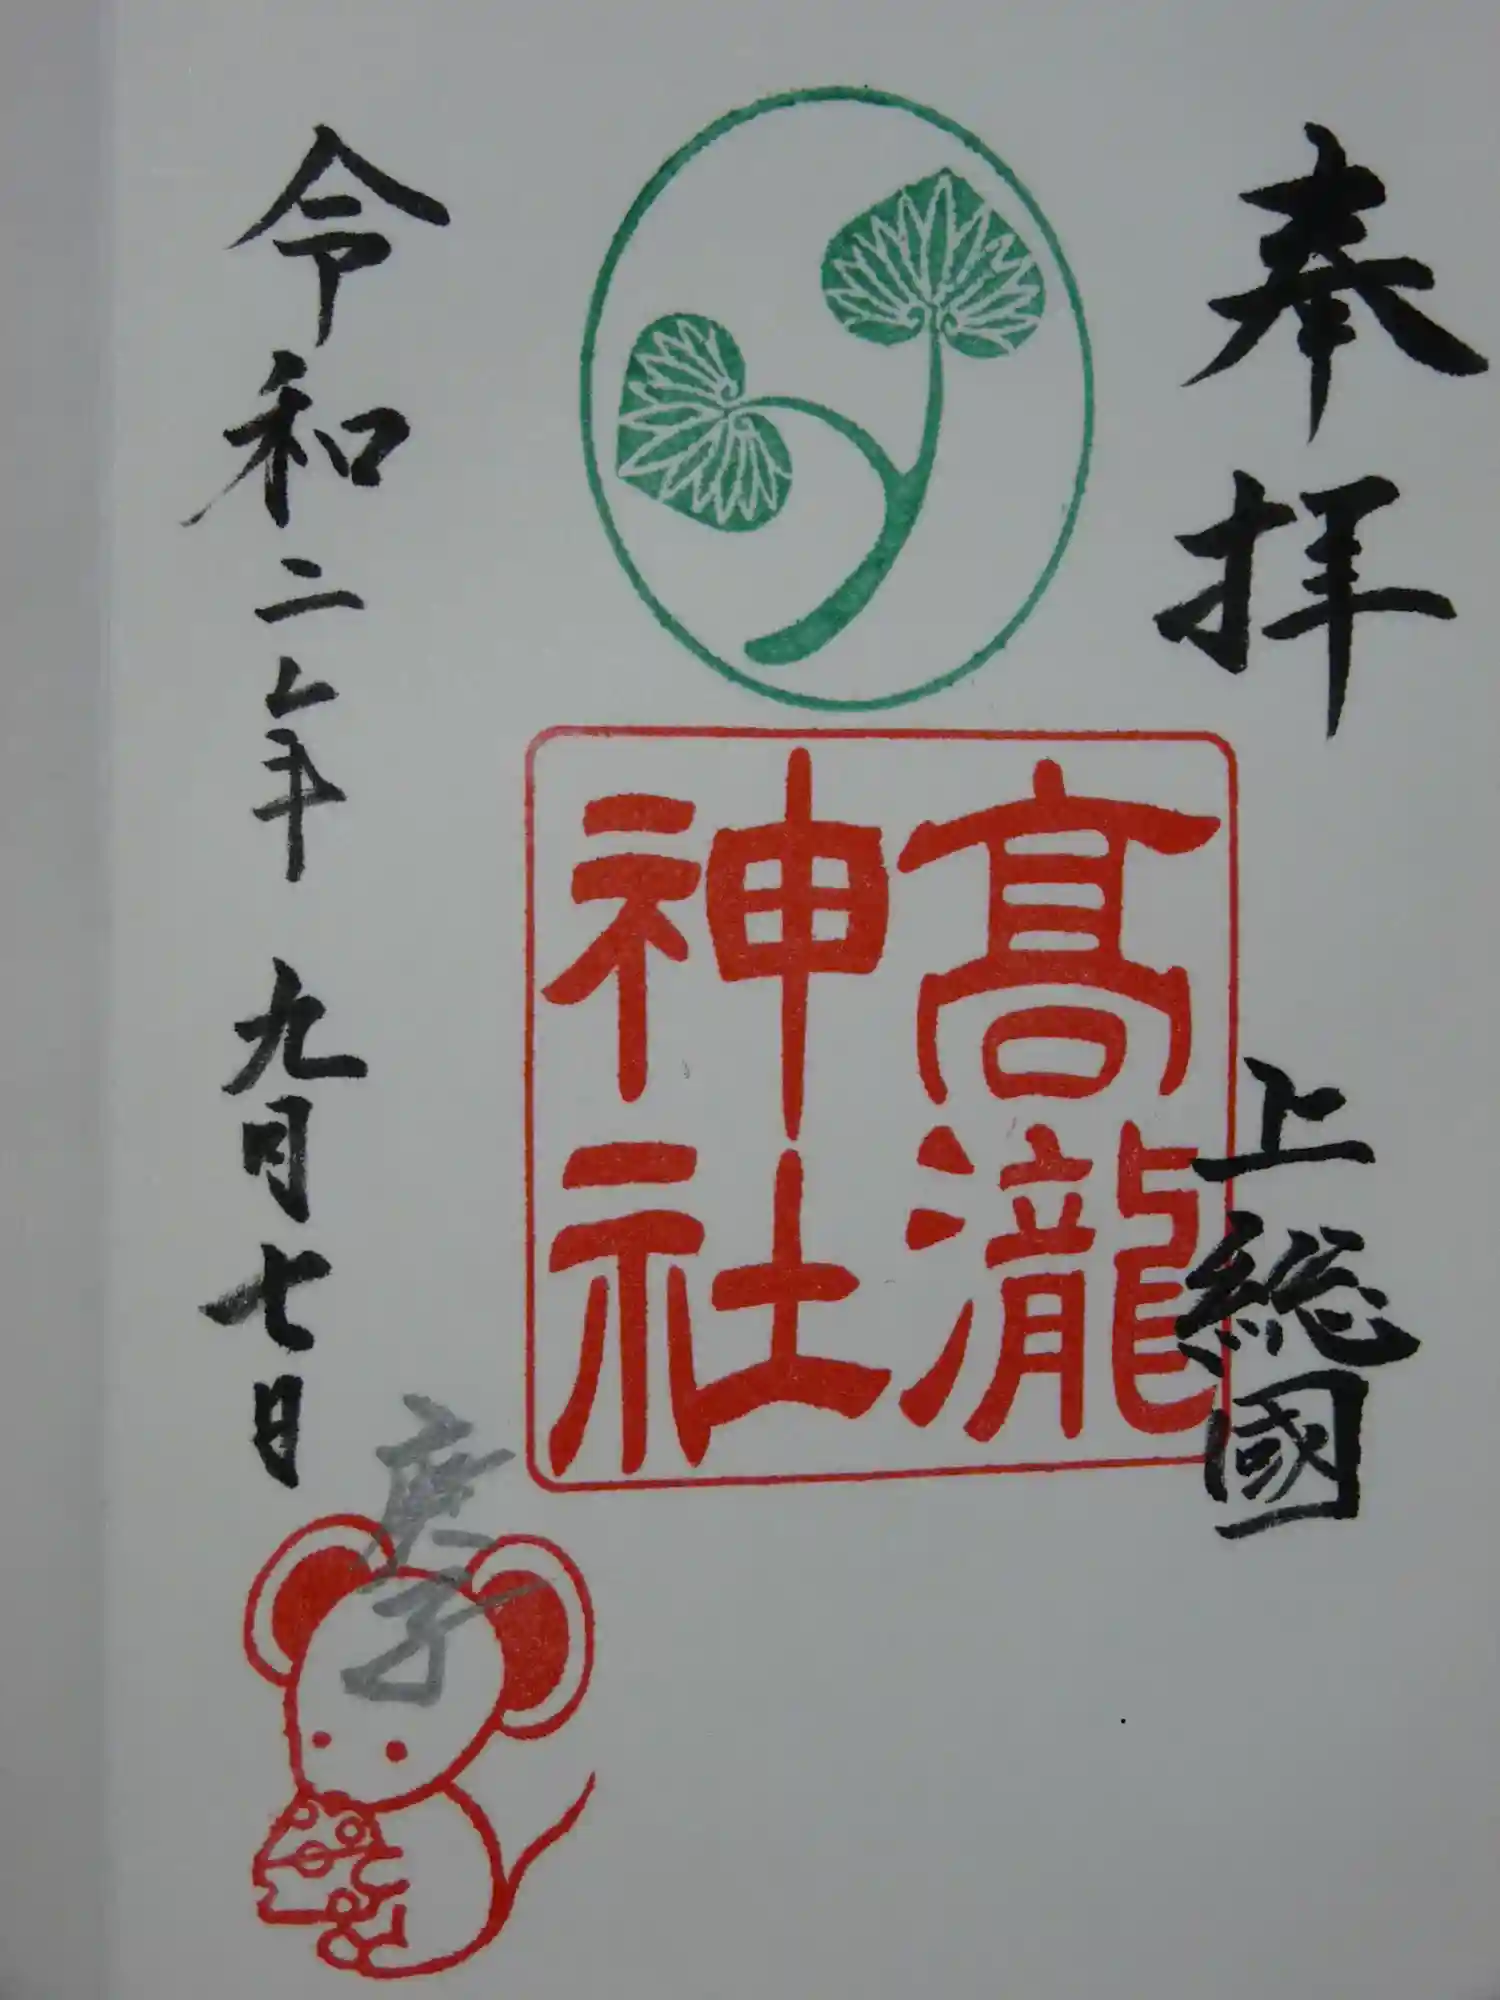 奉拝
上総國
髙瀧
神社
令和二年 九月七日
庚子